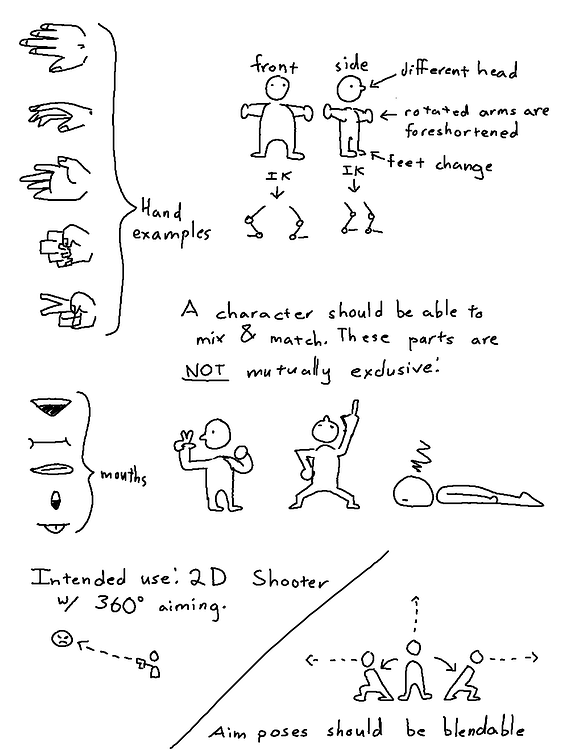 front
side
different head
rotated arms are
foreshortened
feet change
IK
IK
Hand
examples
A character should be able to
mix & match. These parts are
NOT mutually exclusive:
mouths
Intended use: 2D Shooter
w/ 360° aiming.
Aim poses should be blendable